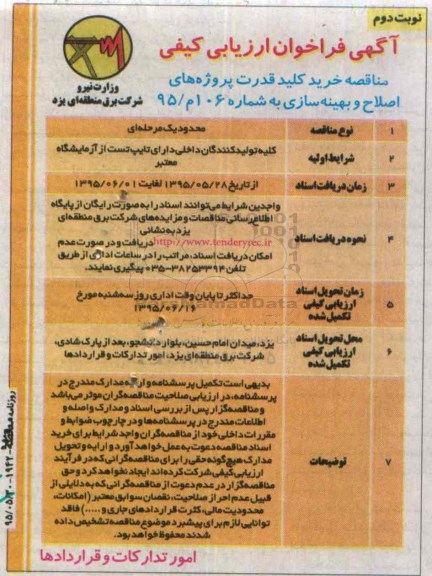 نوبت دوم
آگهی فراخوان ارزیابی کیفی
مناقصه خرید کلید قدرت پروژه‌های
اصلاح و بهینه سازی به شماره ۱۰۶م/۹۵
وزارت نیرو
شرکت برق منطقه‌ای یزد
۱ نوع مناقصه محدود یک مرحله‌ای
۲ شرایط اولیه
کلیه تولیدکنندگان داخلی دارای تایپ تست از آزمایشگاه
معتبر
۳ زمان دریافت اسناد از تاریخ ۱۳۹۵/۰۵/۲۸ لغایت ۱۳۹۵/۰۶/۰۱
۴ نحوه دریافت اسناد
واجدین شرایط می‌توانند اسناد را به صورت رایگان از پایگاه
اطلاع رسانی مناقصات و مزایده‌های شرکت برق منطقه‌ای
یزد به نشانی
http://www.tenderyrec.ir دریافت و در صورت عدم
امکان دریافت اسناد، مراتب را در ساعات اداری از طریق
تلفن ۳۸۲۵۳۳۹۴-۰۳۵ پیگیری نمایند.
۵ زمان تحویل اسناد
ارزیابی کیفی
تکمیل شده
حداکثر تا پایان وقت اداری روز سه‌شنبه مورخ
۱۳۹۵/۰۶/۱۶
۶ محل تحویل اسناد
ارزیابی کیفی
تکمیل شده
یزد، میدان امام حسین، بلوار دانشجو، بعد از پارک شادی،
شرکت برق منطقه‌ای یزد، امور تدارکات و قراردادها
۷ توضیحات
بدیهی است تکمیل پرسشنامه و ارایه مدارک مندرج در
پرسشنامه، در ارزیابی صلاحیت مناقصه‌گران موثر می‌باشد
و مناقصه‌گزار پس از بررسی اسناد و مدارک واصله و
اطلاعات مندرج در پرسشنامه‌ها و در چارچوب ضوابط و
مقررات داخلی خود از مناقصه‌گران واجد شرایط برای خرید
اسناد مناقصه دعوت به عمل خواهد آورد و ارایه و تحویل
مدارک هیچگونه حقی را برای مناقصه‌گرانی که در فرآیند
ارزیابی کیفی شرکت کرده‌اند ایجاد نخواهد کرد و حق
مناقصه‌گزار در عدم دعوت از مناقصه‌گرانی که به دلایلی از
قبیل عدم احراز صلاحیت، نقصان سوابق معتبر (امکانات،
محدودیت مالی، کثرت قراردادهای جاری و .....) فاقد
توانایی لازم برای پیشبرد موضوع مناقصه تشخیص داده
شدند محفوظ خواهد بود.
امور تدارکات و قراردادها